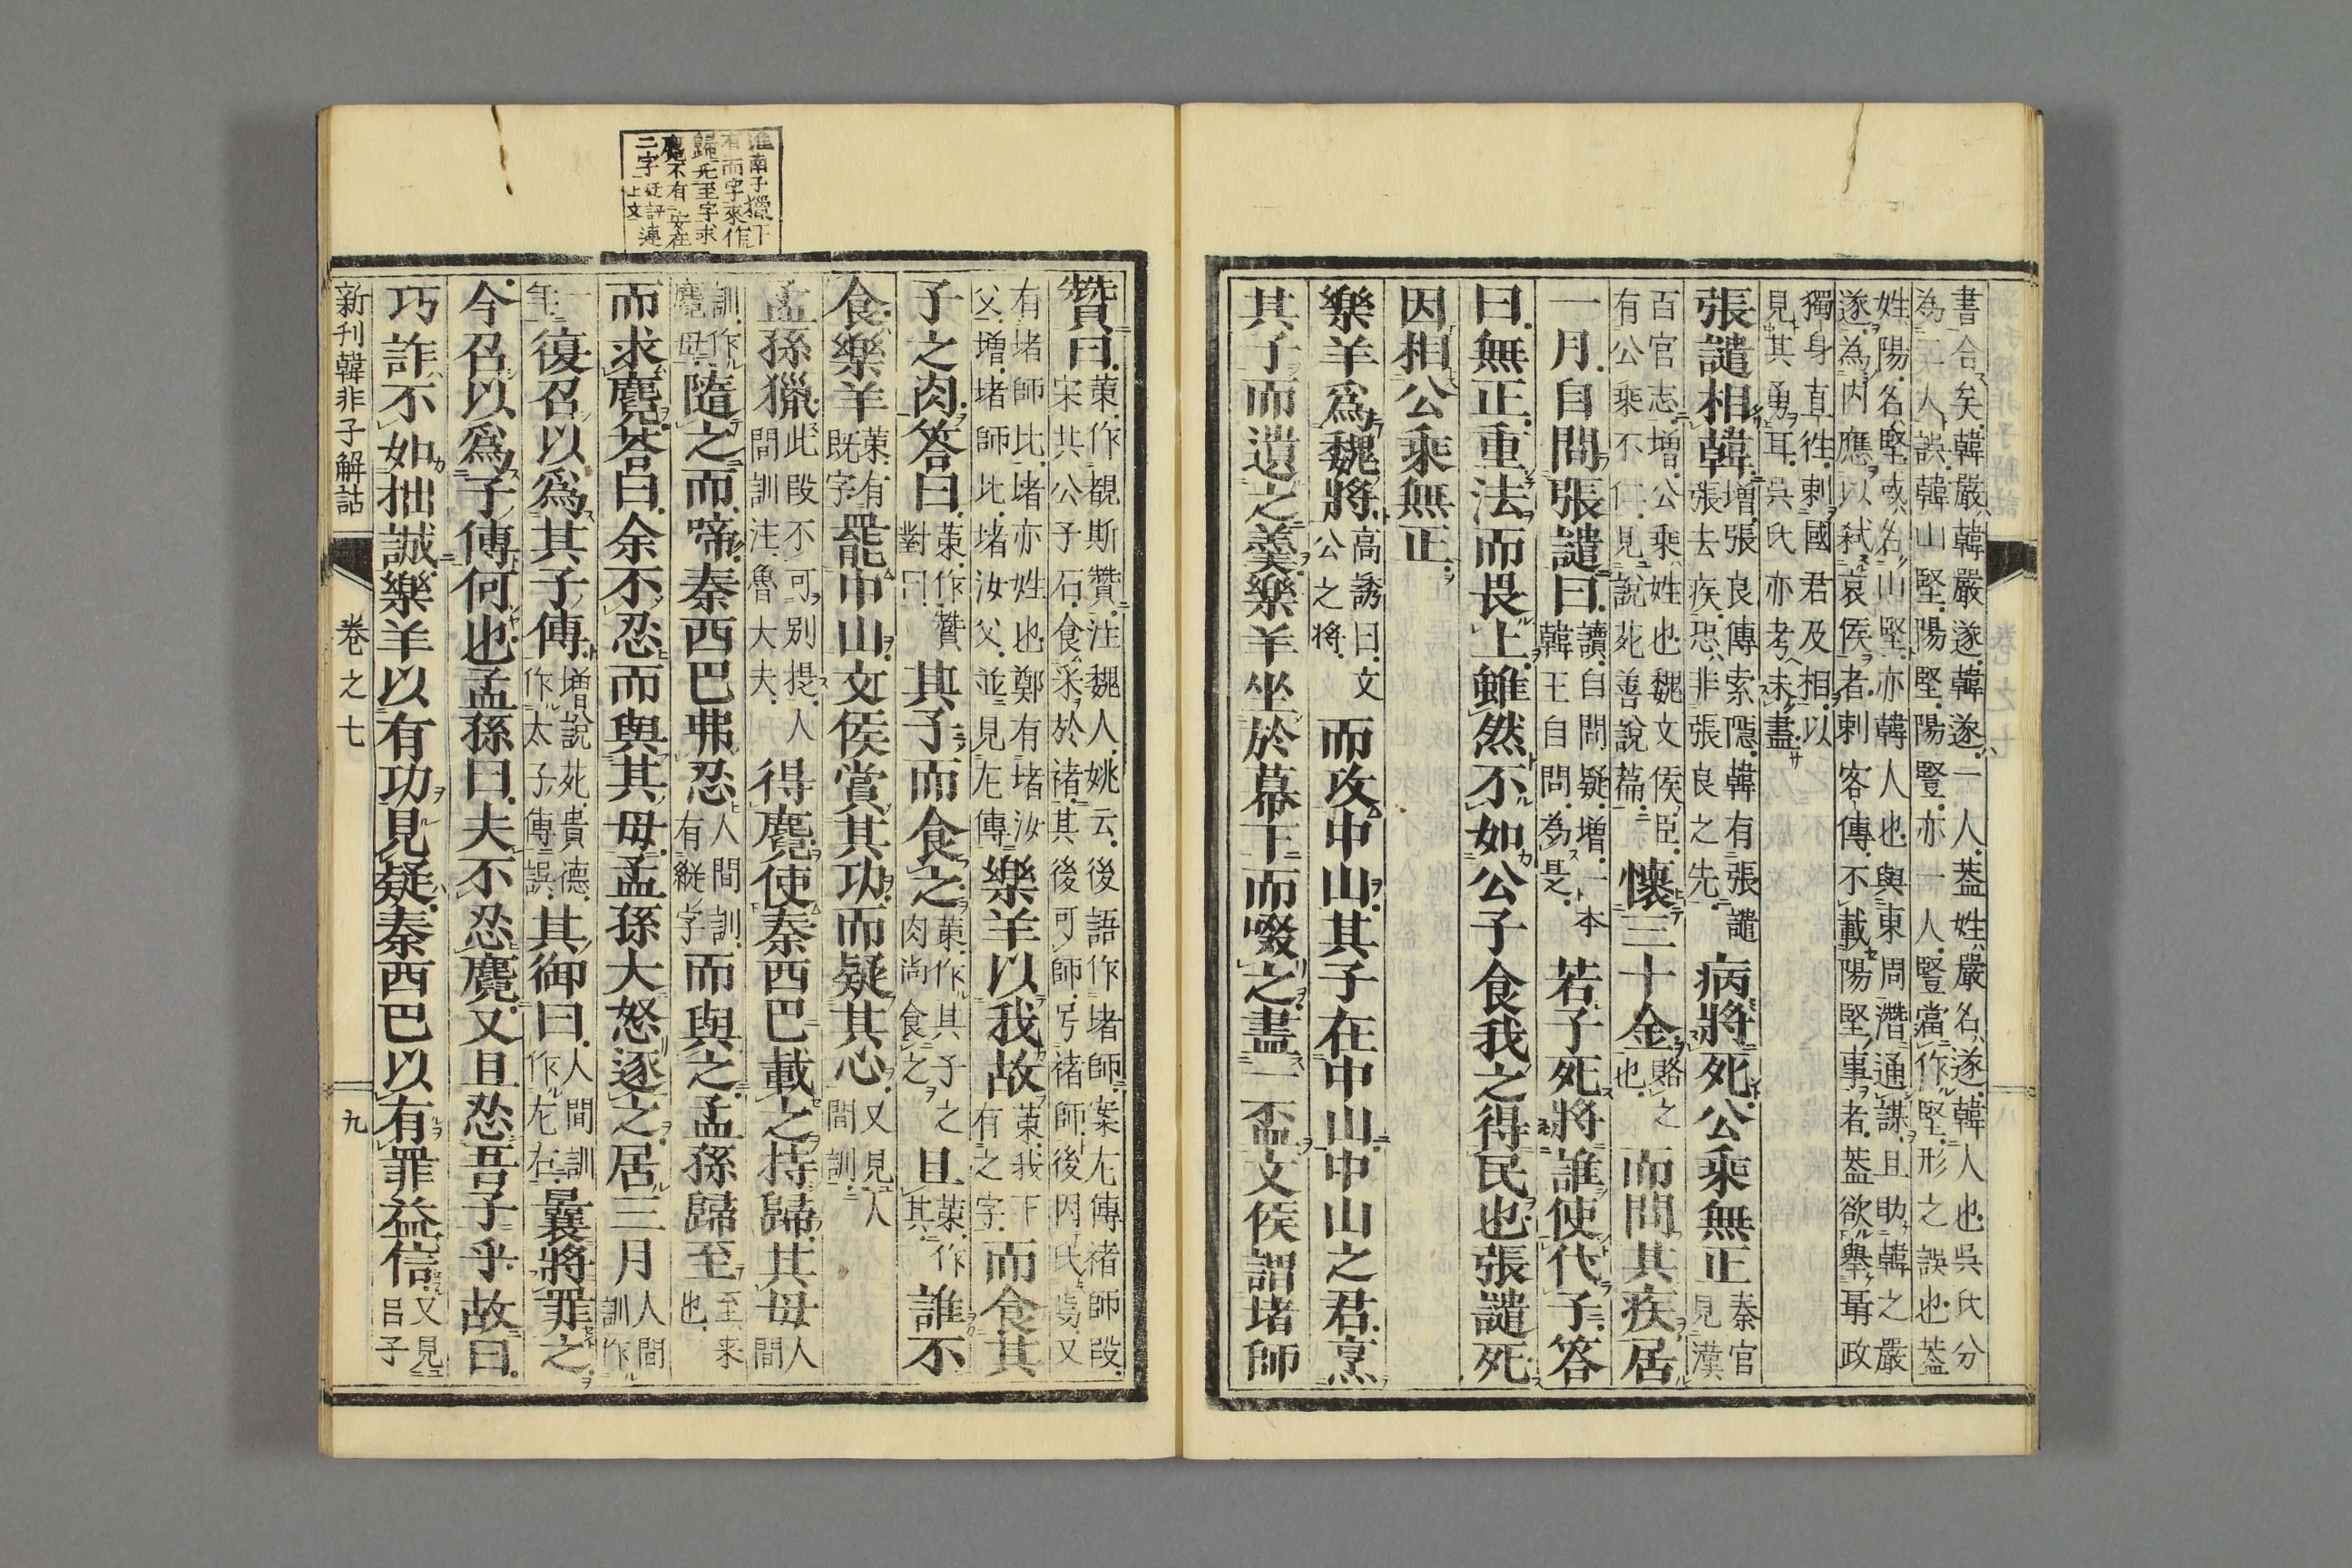 書合矣韓嚴韓嚴遂韓遂一人葢姓嚴名遂韓人也吳氏分
為二人誤韓山堅陽堅陽豎亦一人豎當作堅形之誤也葢
姓陽名堅或名山堅亦韓人也與東周潛通謀且助韓之嚴
遂為内應以弑哀侯者刺客傳不載陽堅事者葢欲舉聶政
獨身直徃刺國君及相以
見其勇耳吳氏亦考未盡
張譴相韓增張良傳索隱韓有張譴
張去疾恐非張良之先病將死公乘無正秦官
見漢
百官志增公乘姓也魏文侯臣
有公乘不仁見說苑善說篇懷三十金賂之
也而問其疾居
一月自問張譴曰讀自問疑增一本
韓王自問為是若子死將誰使代子答
曰無正重法而畏上雖然不如公子食我之得民也張譴死
因相公乘無正
樂羊為魏將高誘曰文
公之将而攻中山其子在中山中山之君烹
其子而遺之羹樂羊坐於幕下而啜之盡一盃文侯謂堵師
贊曰策作覩斯贊注魏人姚云後語作堵師案左傳褚師段
宋共公子石食采於褚其後可師号褚師後因氏焉又
有堵師比堵亦姓也鄭有堵汝
父增堵師比堵汝父並見左傳樂羊以我故策我下
有之字而食其
子之肉答曰策作贊
對曰其子而食之策作其子之
肉尚食之且策作
其誰不
食樂羊策有
既字罷中山文侯賞其功而疑其心又見人
間訓
孟孫獵此段不可別提人
間訓注魯大夫得麑使秦西巴載之持歸其母人
間
訓作
麑母隨之而啼秦西巴弗忍人間訓
有縦字而與之孟孫歸至至来
也
而求麑答曰余不忍而與其母孟孫大怒逐之居三月人間
訓作
一
年復召以為其子傳增說苑貴德
作太子傳誤其御曰人間訓
作左右曩將罪之
今召以為子傳何也孟孫曰夫不忍麑又且忍吾子乎故曰
巧詐不如拙誠樂羊以有功見疑秦西巴以有罪益信又見
呂子
新刊韓非子解詁
卷之七
九
淮南子獵下
有而字來作
歸无至字求
麑不有安在
二字
上文